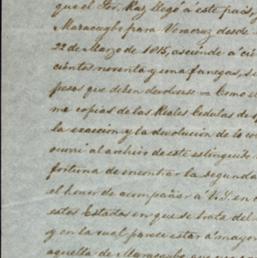 que el Sor. Raz llegó á este país,
Maracaybo para Veracruz desde
22 de Marzo de 1815, asciende á
cientos noventa y una fanegas,
pesos que deben devolverse = Como
me copias de las Reales Cedulas de
la exaccion y la devolucion de lo
ocurrí al archivo de este estinguido
fortuna de encontrar la segunda
el honor de acompañar á V.S. en
estos Estados en que se trata del
y en la cual parece estar á mayor
aquella de Maracaybo que